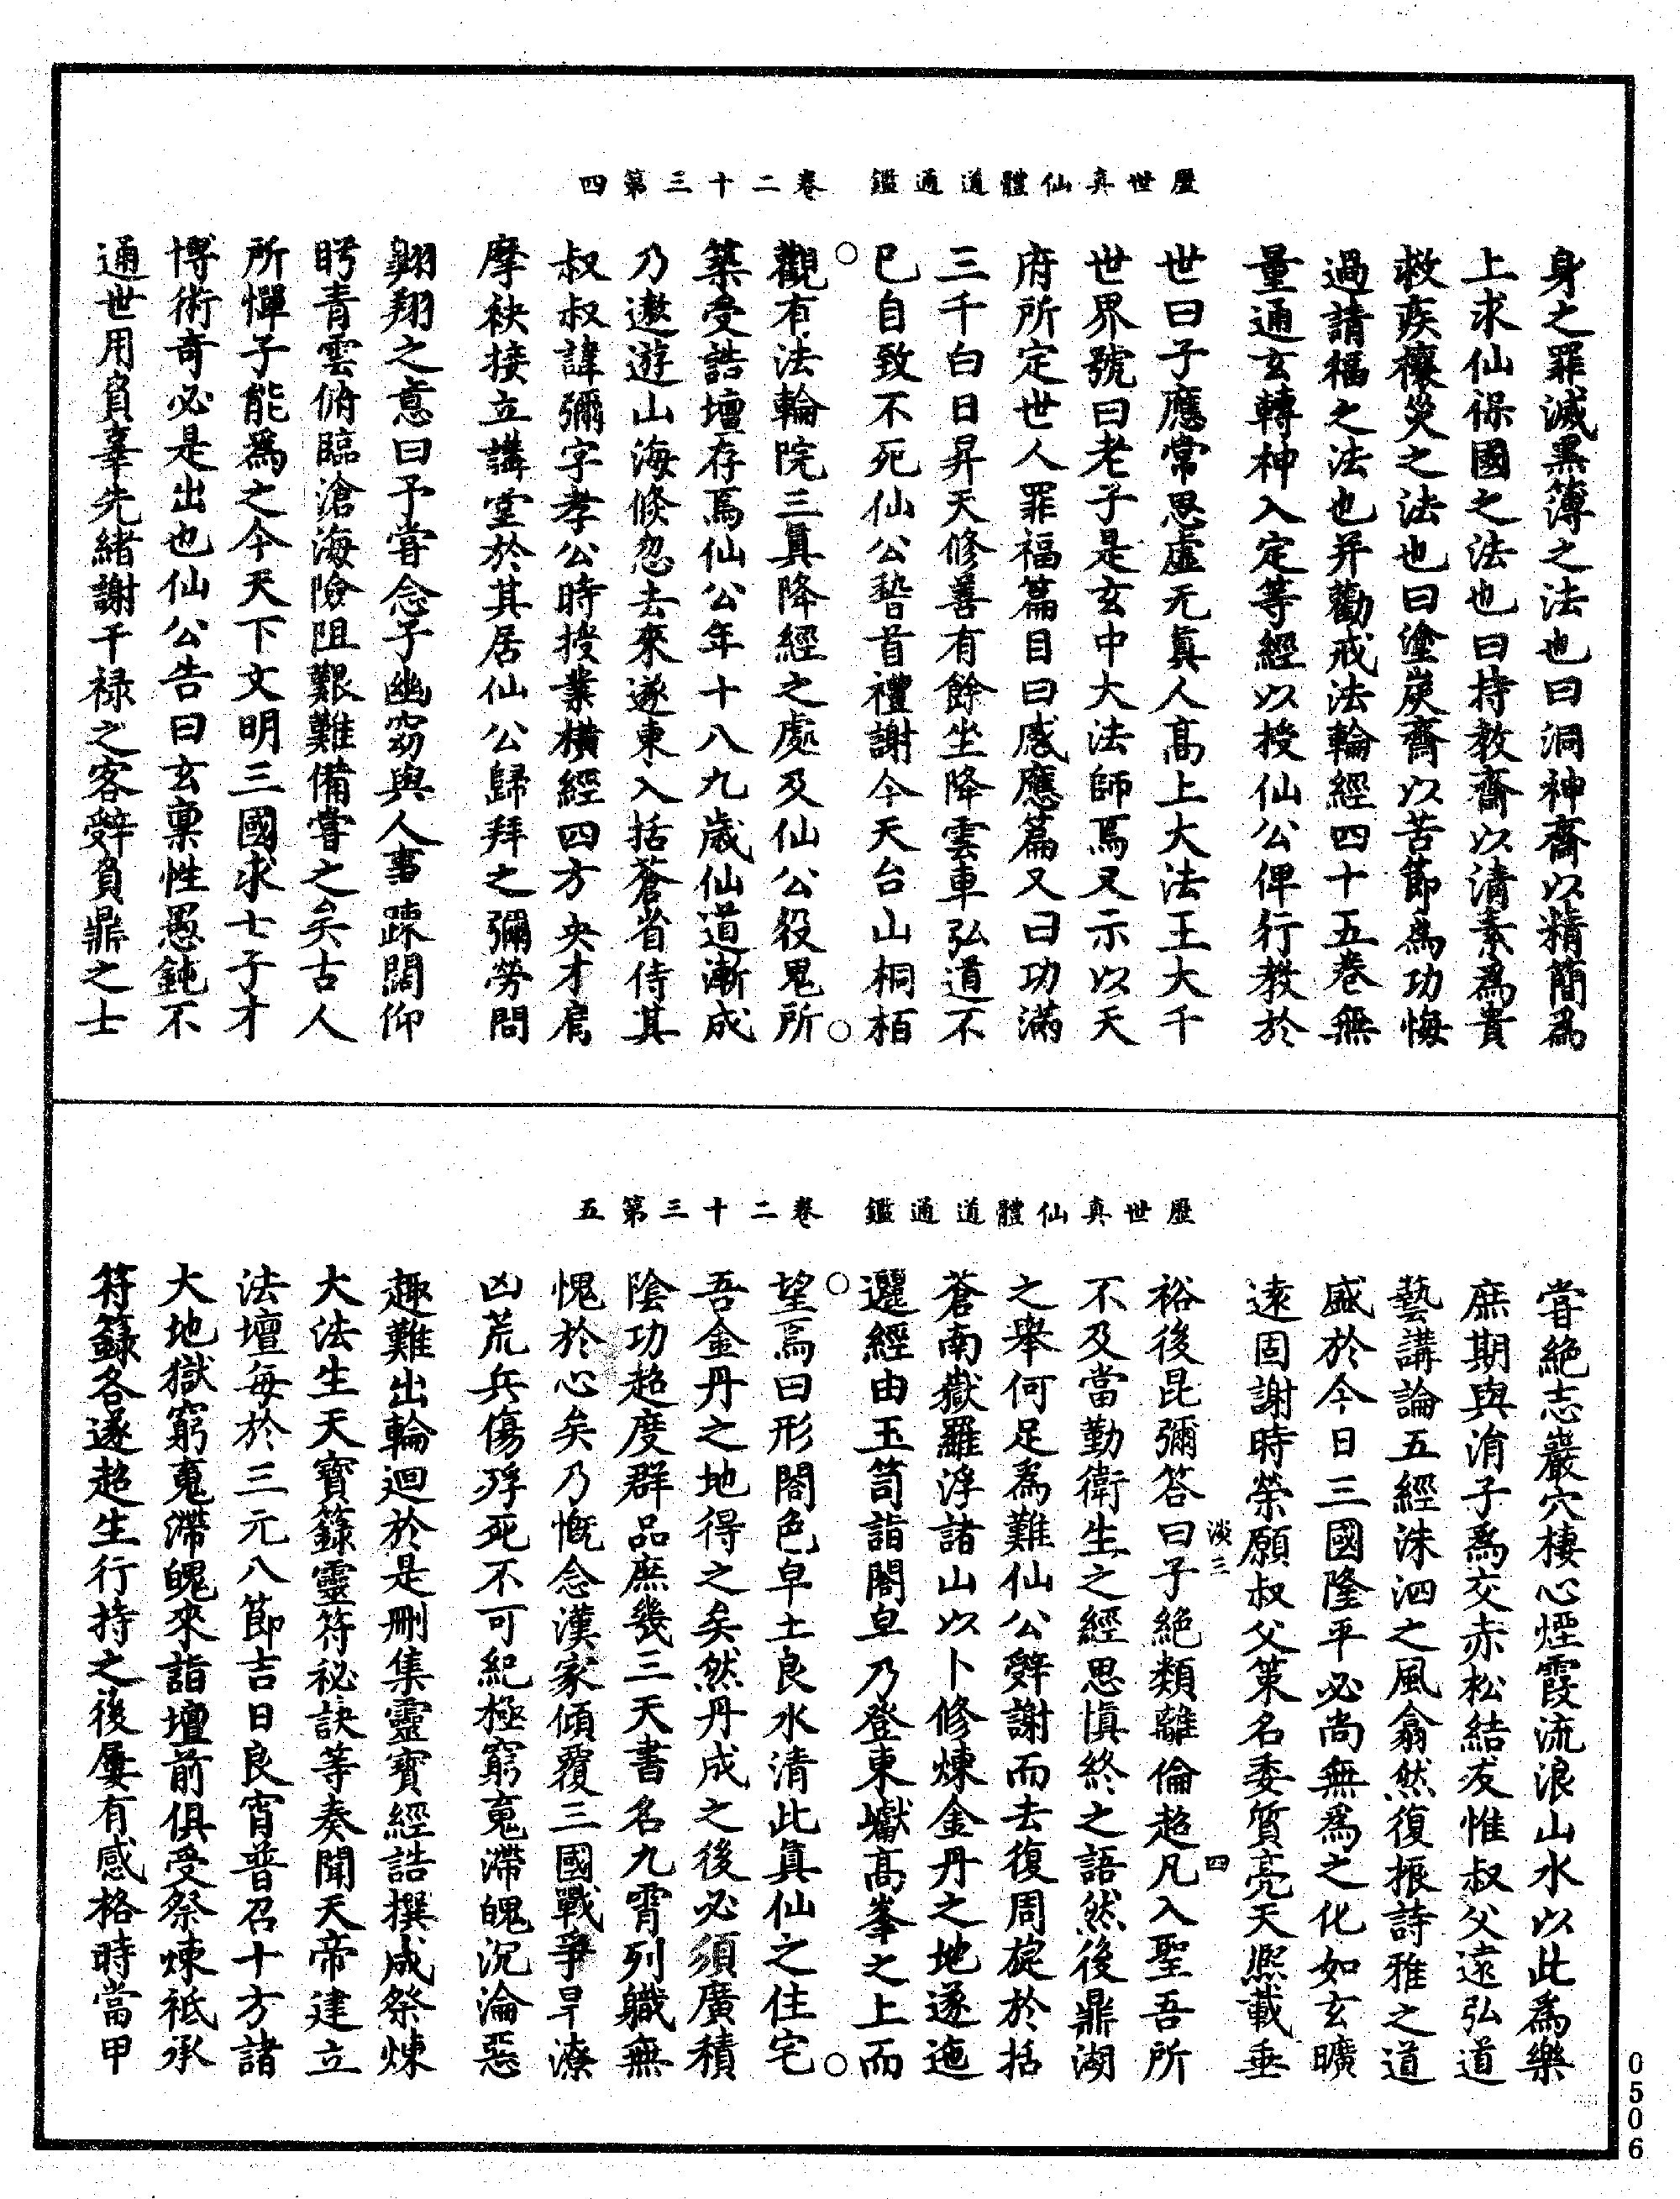 歷世真仙體道通鑑　卷二十三第四
身之罪滅黑簿之法也曰洞神齋以精簡爲
上求仙保國之法也曰持教齋以清素爲貴
救疾禳災之法也曰塗炭齋以苦節爲功悔
過請福之法也并勸戒法輪經四十五卷無
量通玄轉神入定等經以授仙公俾行教於
世曰子應常思虛无眞人高上大法王大千
世界號曰老子是玄中大法師焉又示以天
府所定世人罪福篇目曰感應篇又曰功滿
三千白日昇天修善有餘坐降雲車弘道不
已自致不死仙公稽首禮謝今天台山桐栢
觀有法輪院三眞降經之處及仙公役鬼所
築受誥壇存焉仙公年十八九歲仙道漸成
乃遨遊山海倏忽去來遂東入括蒼省侍其
叔叔諱彌字孝公時授業橫經四方央才肩
摩袂接立講堂於其居仙公歸拜之彌勞問
翺翔之意曰予嘗念子幽窈與人事踈闊仰
眄青雲俯臨滄海險阻艱難備嘗之矣古人
所憚子能爲之今天下文明三國求士子才
博術奇必是出也仙公告曰玄稟性愚鈍不
通世用負辜先緒謝千祿之客辭負鼎之士
歷世真仙體道通鑑　卷二十三第五
嘗絕志巖穴棲心煙霞流浪山水以此爲樂
庶期與涓子爲交赤松結友惟叔父遠弘道
藝講論五經洙泗之風翕然復振詩雅之道
盛於今日三國隆平必尚無爲之化如玄曠
遠固謝時榮願叔父策名委質亮天熙載垂
裕後昆彌答曰子絕類離倫超凡入聖吾所
淡三　四
不及當勤衛生之經思愼終之語然後鼎湖
之舉何足爲難仙公辭謝而去復周旋於括
蒼南嶽羅浮諸山以卜修煉金丹之地遂迤
邐經由玉笥詣閤皁乃登東巘高峯之上而
望焉曰形閤色皁土良水清此眞仙之住宅
吾金丹之地得之矣然丹成之後必須廣積
陰功超度群品庶幾三天書名九霄列職無
愧於心矣乃慨念漢家傾覆三國戰爭旱潦
凶荒兵傷殍死不可紀極窮䰟滯魄沉淪惡
趣難出輪迴於是刪集靈寳經誥撰成祭煉
大法生天寳籙靈符祕訣等奏聞天帝建立
法壇每於三元八節吉日良宵普召十方諸
大地獄窮䰟滯魄來詣壇前俱受祭煉祗承
符籙各遂超生行持之後屢有感格時當甲
0506